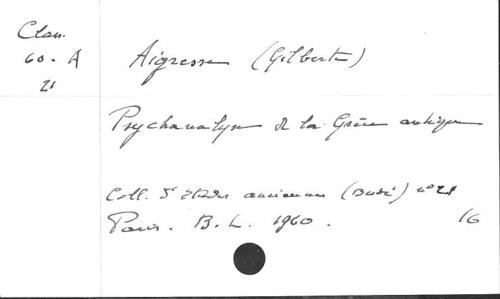 Clas.
60. A
21
Aigresse (Gilberte)
Psychanalyse de la Grèce antique
Coll. d'études anciennes (Budé) n° 21
Paris. B. L. 1960.
16